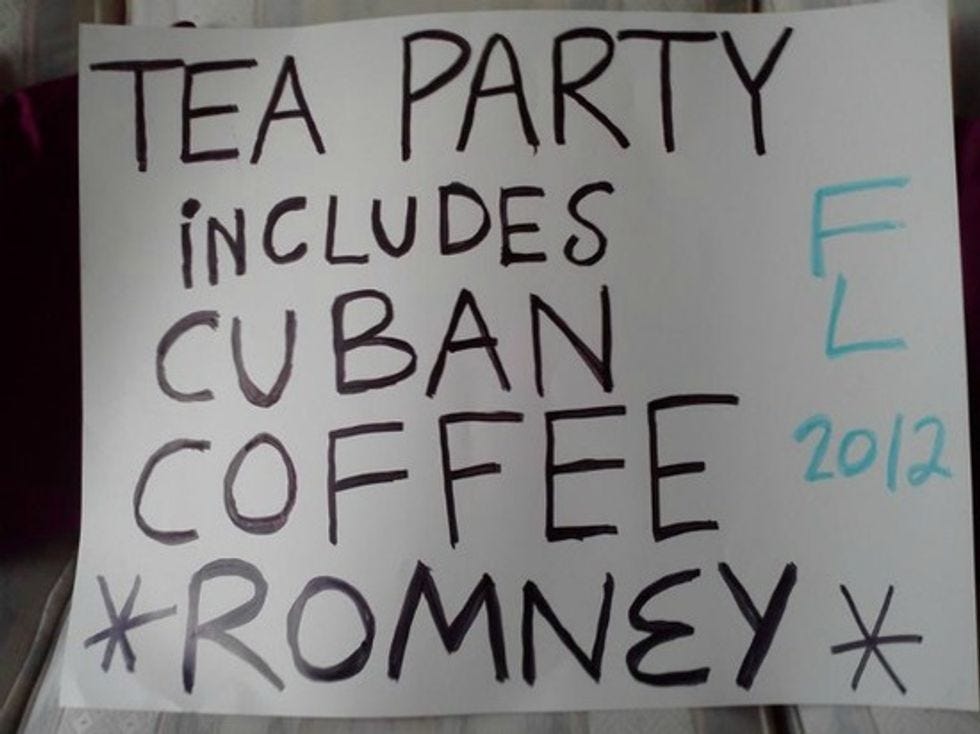 TEA PARTY
iNCLUDES
CUBAN
COFFEE
*ROMNEY*
F
L
2012